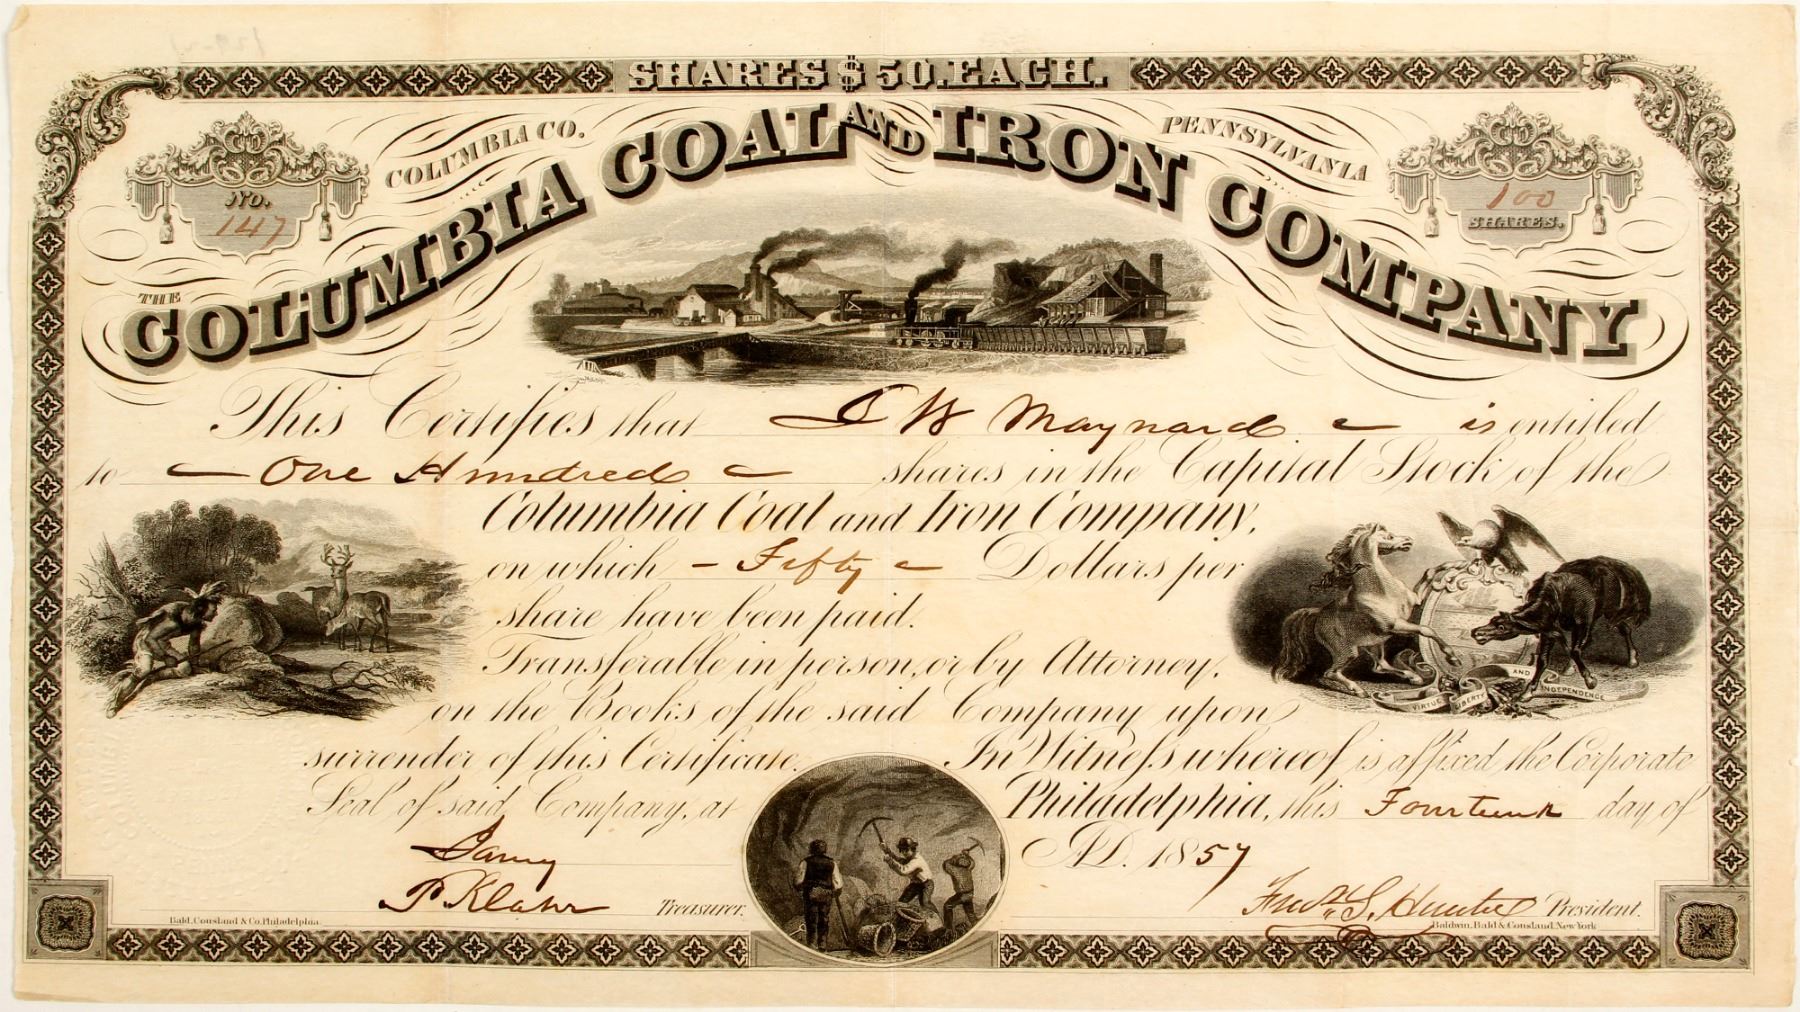 SHARES $50. EACH.
COLUMBIA CO. PENNSYLVANIA
No. 147
100 SHARES.
THE COLUMBIA COAL AND IRON COMPANY
This Certifies that J W Maynard is entitled
to One Hundred shares in the Capital Stock of the
Columbia Coal and Iron Company,
on which - Fifty - Dollars per
share have been paid.
Transferable in person, or by Attorney,
on the Books of the said Company upon
surrender of this Certificate. In Witness whereof is affixed the Corporate
Seal of said Company, at Philadelphia, this Fourteenth day of
A.D. 1857
P Klahr Treasurer.
S. Hunter President.
VIRTUE LIBERTY AND INDEPENDENCE
Bald, Cousland & Co. Philadelphia.
Baldwin, Bald & Cousland, New York